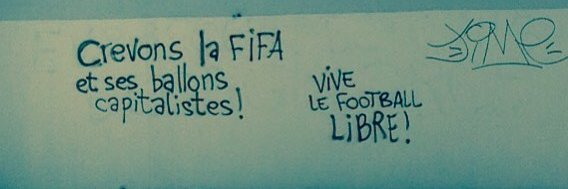 Crevons la FiFA
et ses ballons
capitalistes!
ViVE
LE FOOTBALL
LiBRE!